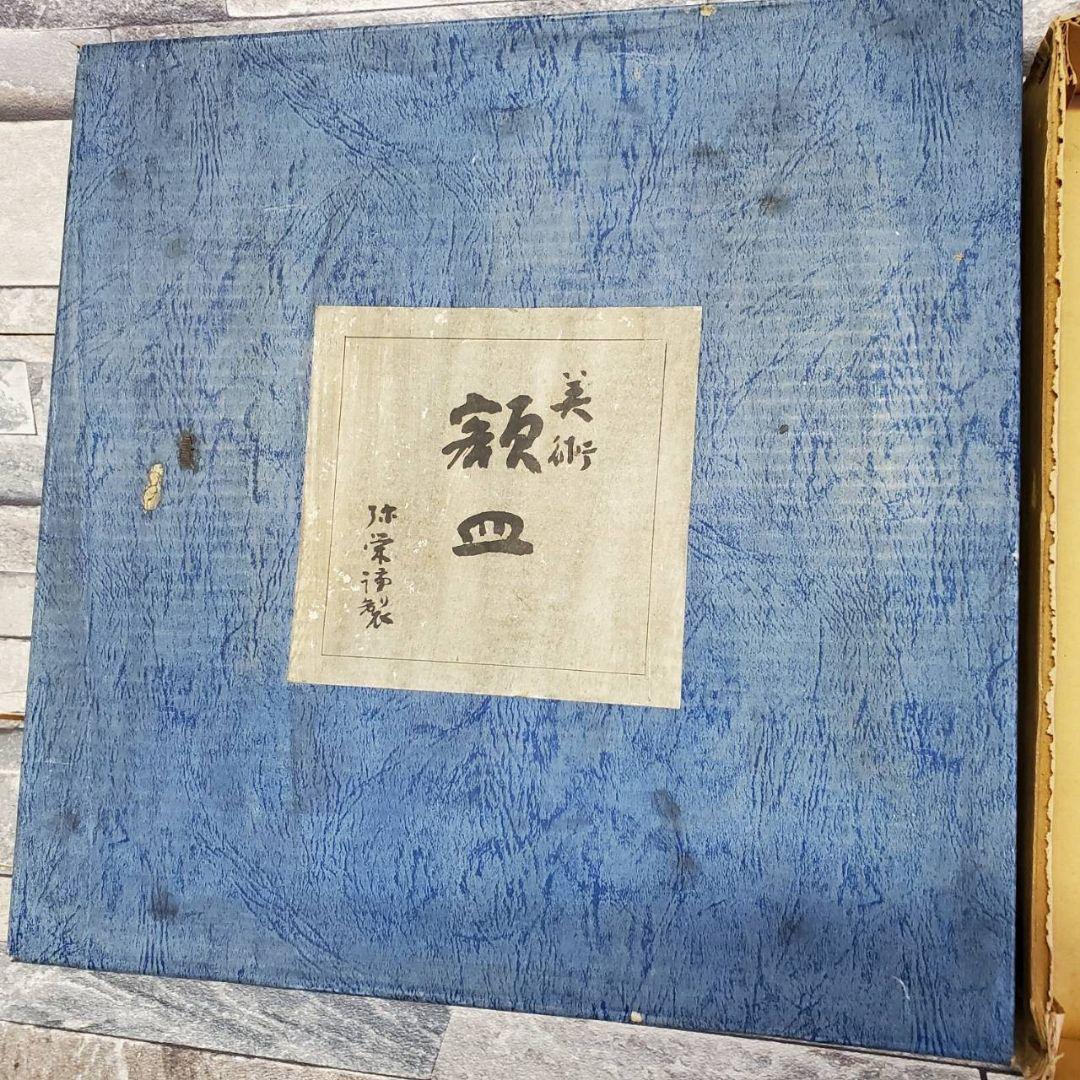 美術
額皿
弥栄謹製